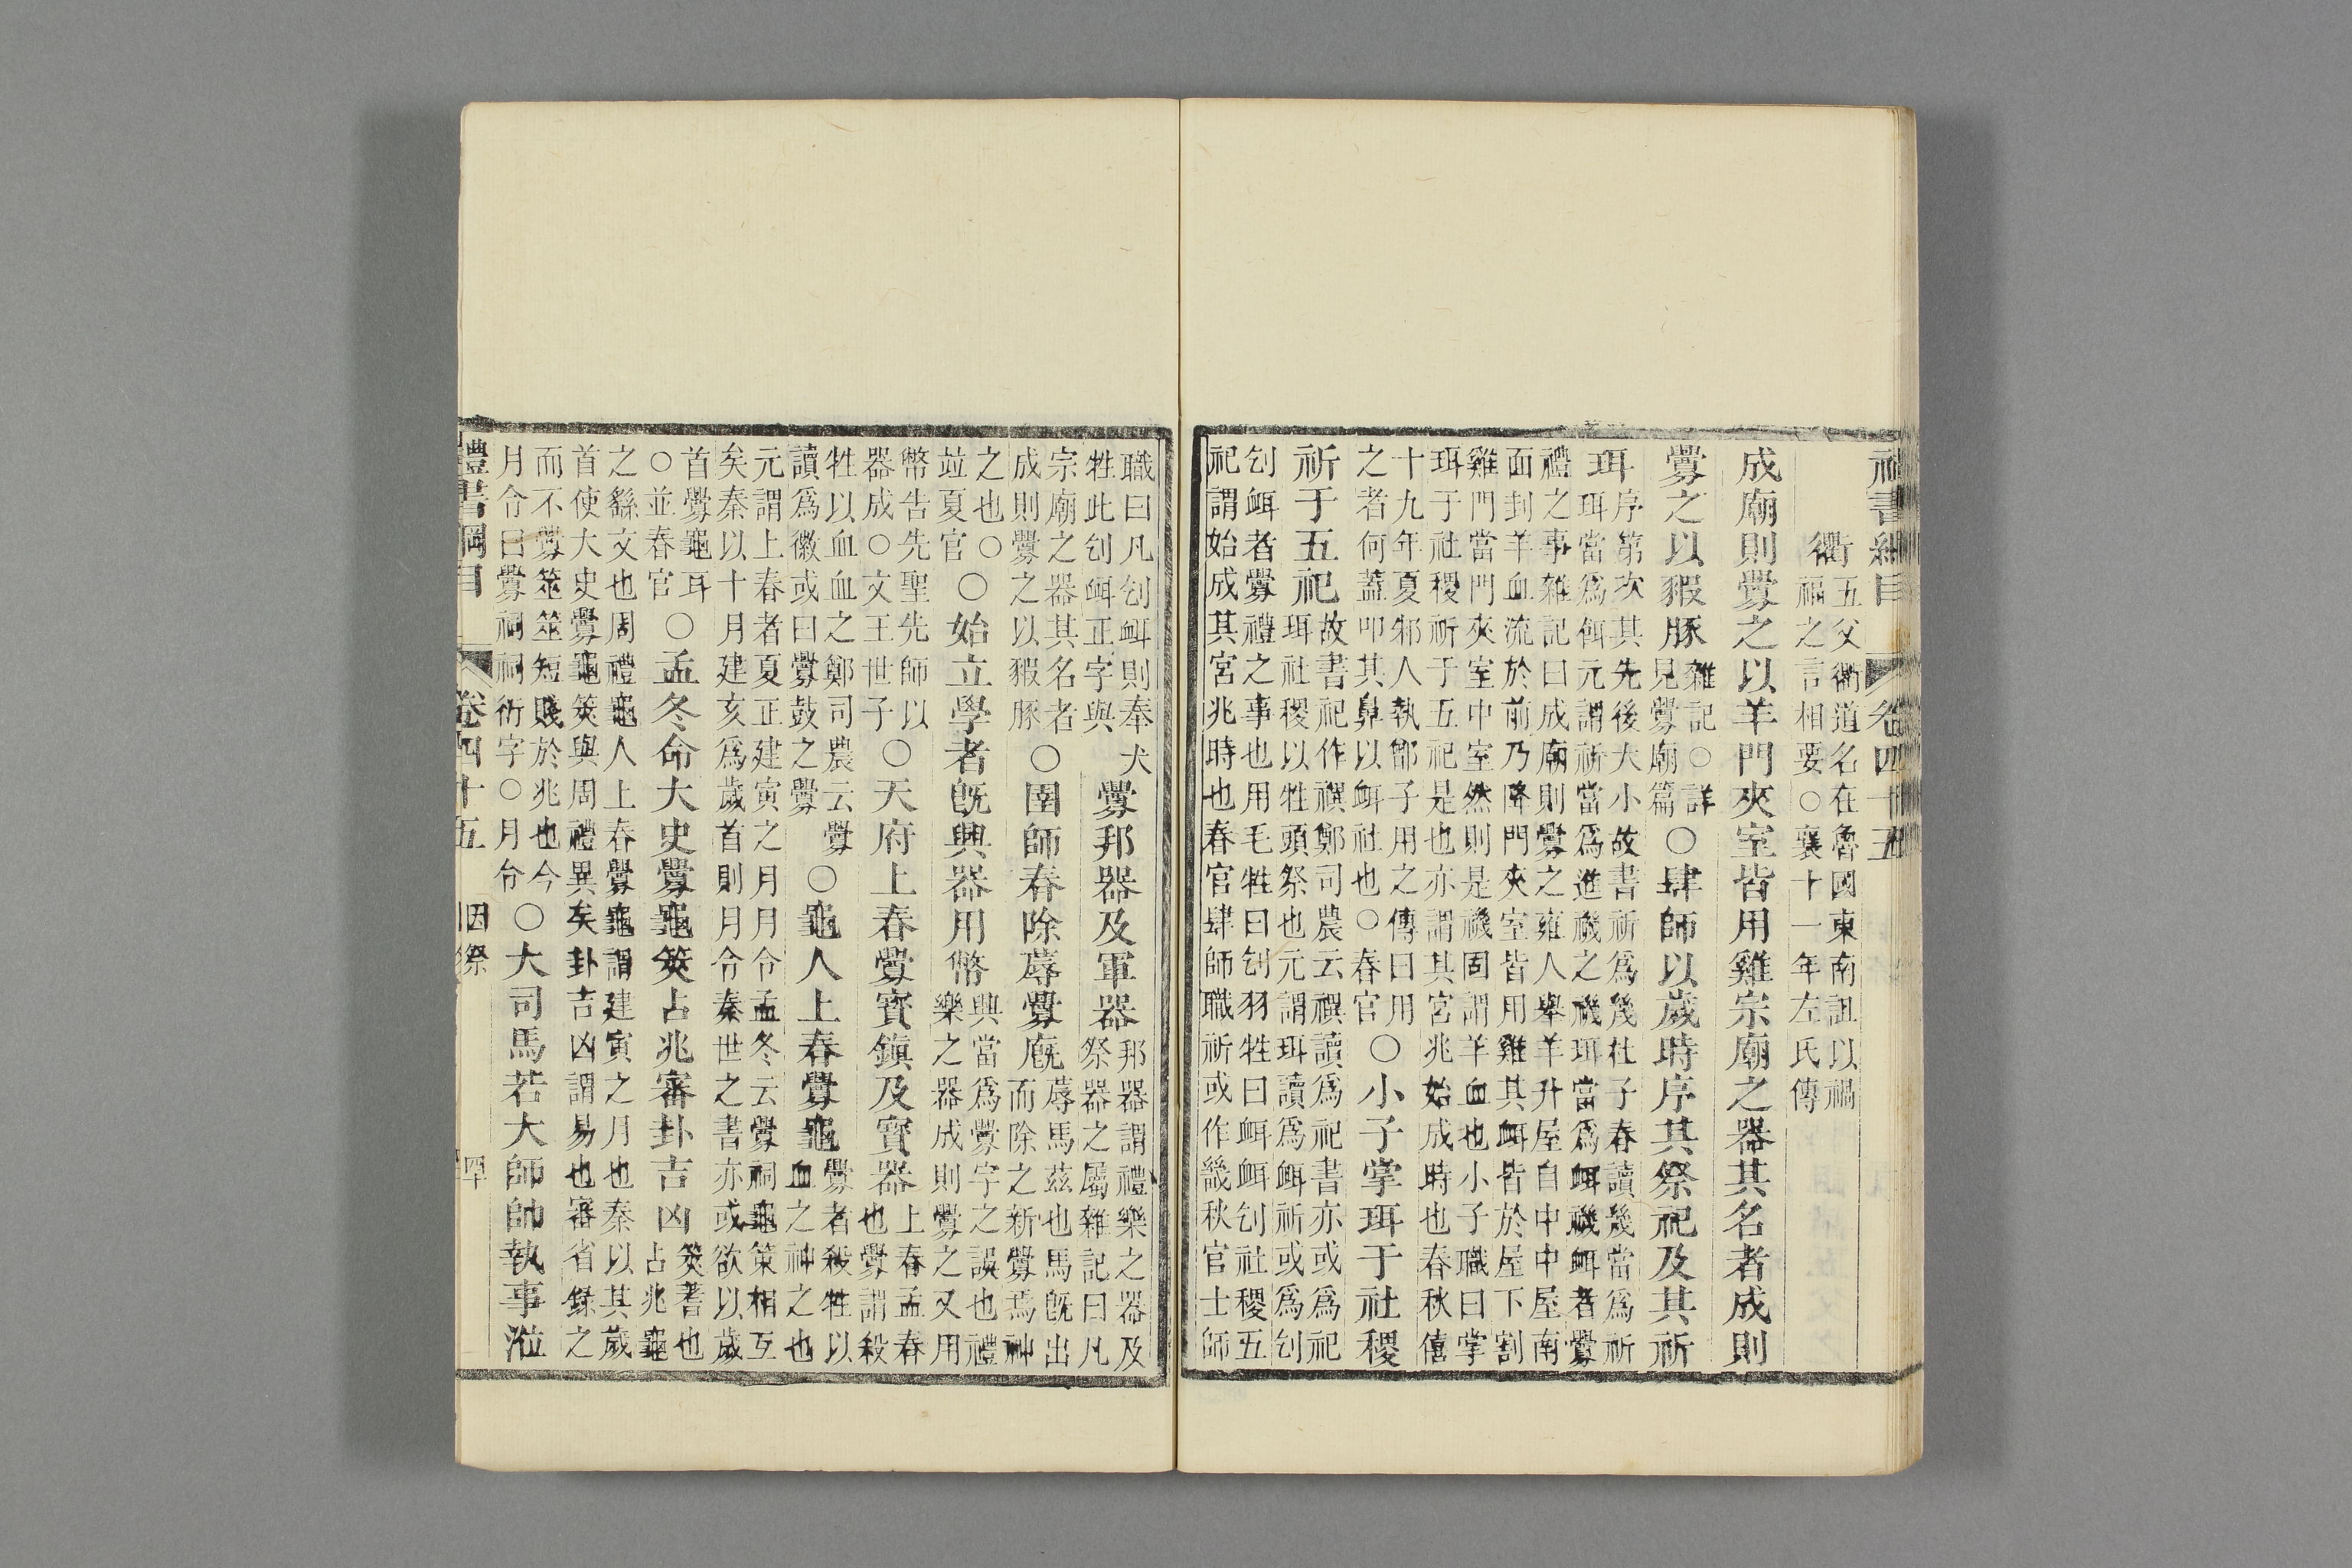 禮書綱目 卷四十五
衢五父衢道名在魯國東南詛以禍
福之言相要○襄十一年左氏傳
成廟則釁之以羊門夾室皆用雞宗廟之器其名者成則
釁之以豭豚雜記○詳
見釁廟篇○肆師以歲時序其祭祀及其祈
珥序第次其先後大小故書祈爲幾杜子春讀幾當爲祈
珥當爲餌元謂祈當爲進禨之禨珥當爲衈禨衈者釁
禮之事雜記曰成廟則釁之雍人舉羊升屋自中中屋南
面刲羊血流於前乃降門夾室皆用雞其衈皆於屋下割
雞門當門夾室中室然則是禨固謂羊血也小子職曰掌
珥于社稷祈于五祀是也亦謂其宮兆始成時也春秋僖
十九年夏邾人執鄫子用之傳曰用
之者何蓋叩其鼻以衈社也○春官○小子掌珥于社稷
祈于五祀故書祀作禩鄭司農云禩讀爲祀書亦或爲祀
珥社稷以牲頭祭也元謂珥讀爲衈祈或爲刉
刉衈者釁禮之事也用毛牲曰刉羽牲曰衈衈刉社稷五
祀謂始成其宮兆時也春官肆師職祈或作畿秋官士師
職曰凡刉衈則奉犬
牲此刉衈正字與釁邦器及軍器邦器謂禮樂之器及
祭器之屬雜記曰凡
宗廟之器其名者
成則釁之以豭豚○圉師春除蓐釁廐蓐馬茲也馬旣出
而除之新釁焉神
之也○
竝夏官○始立學者旣興器用幣興當爲釁字之誤也禮
樂之器成則釁之又用
幣告先聖先師以
器成○文王世子○天府上春釁寶鎭及寶器上春孟春
也釁謂殺
牲以血血之鄭司農云釁
讀爲徽或曰釁鼓之釁○龜人上春釁龜釁者殺牲以
血之神之也
元謂上春者夏正建寅之月月令孟冬云釁祠龜策相互
矣秦以十月建亥爲歲首則月令秦世之書亦或欲以歲
首釁龜耳
○並春官○孟冬命大史釁龜筴占兆審卦吉凶筴蓍也
占兆龜
之繇文也周禮龜人上春釁龜謂建寅之月也秦以其歲
首使大史釁龜筴與周禮異矣卦吉凶謂易也審省錄之
而不釁筮筮短賤於兆也今
月令曰釁祠祠衍字○月令○大司馬若大師帥執事涖
禮書綱目 卷四十五 因祭